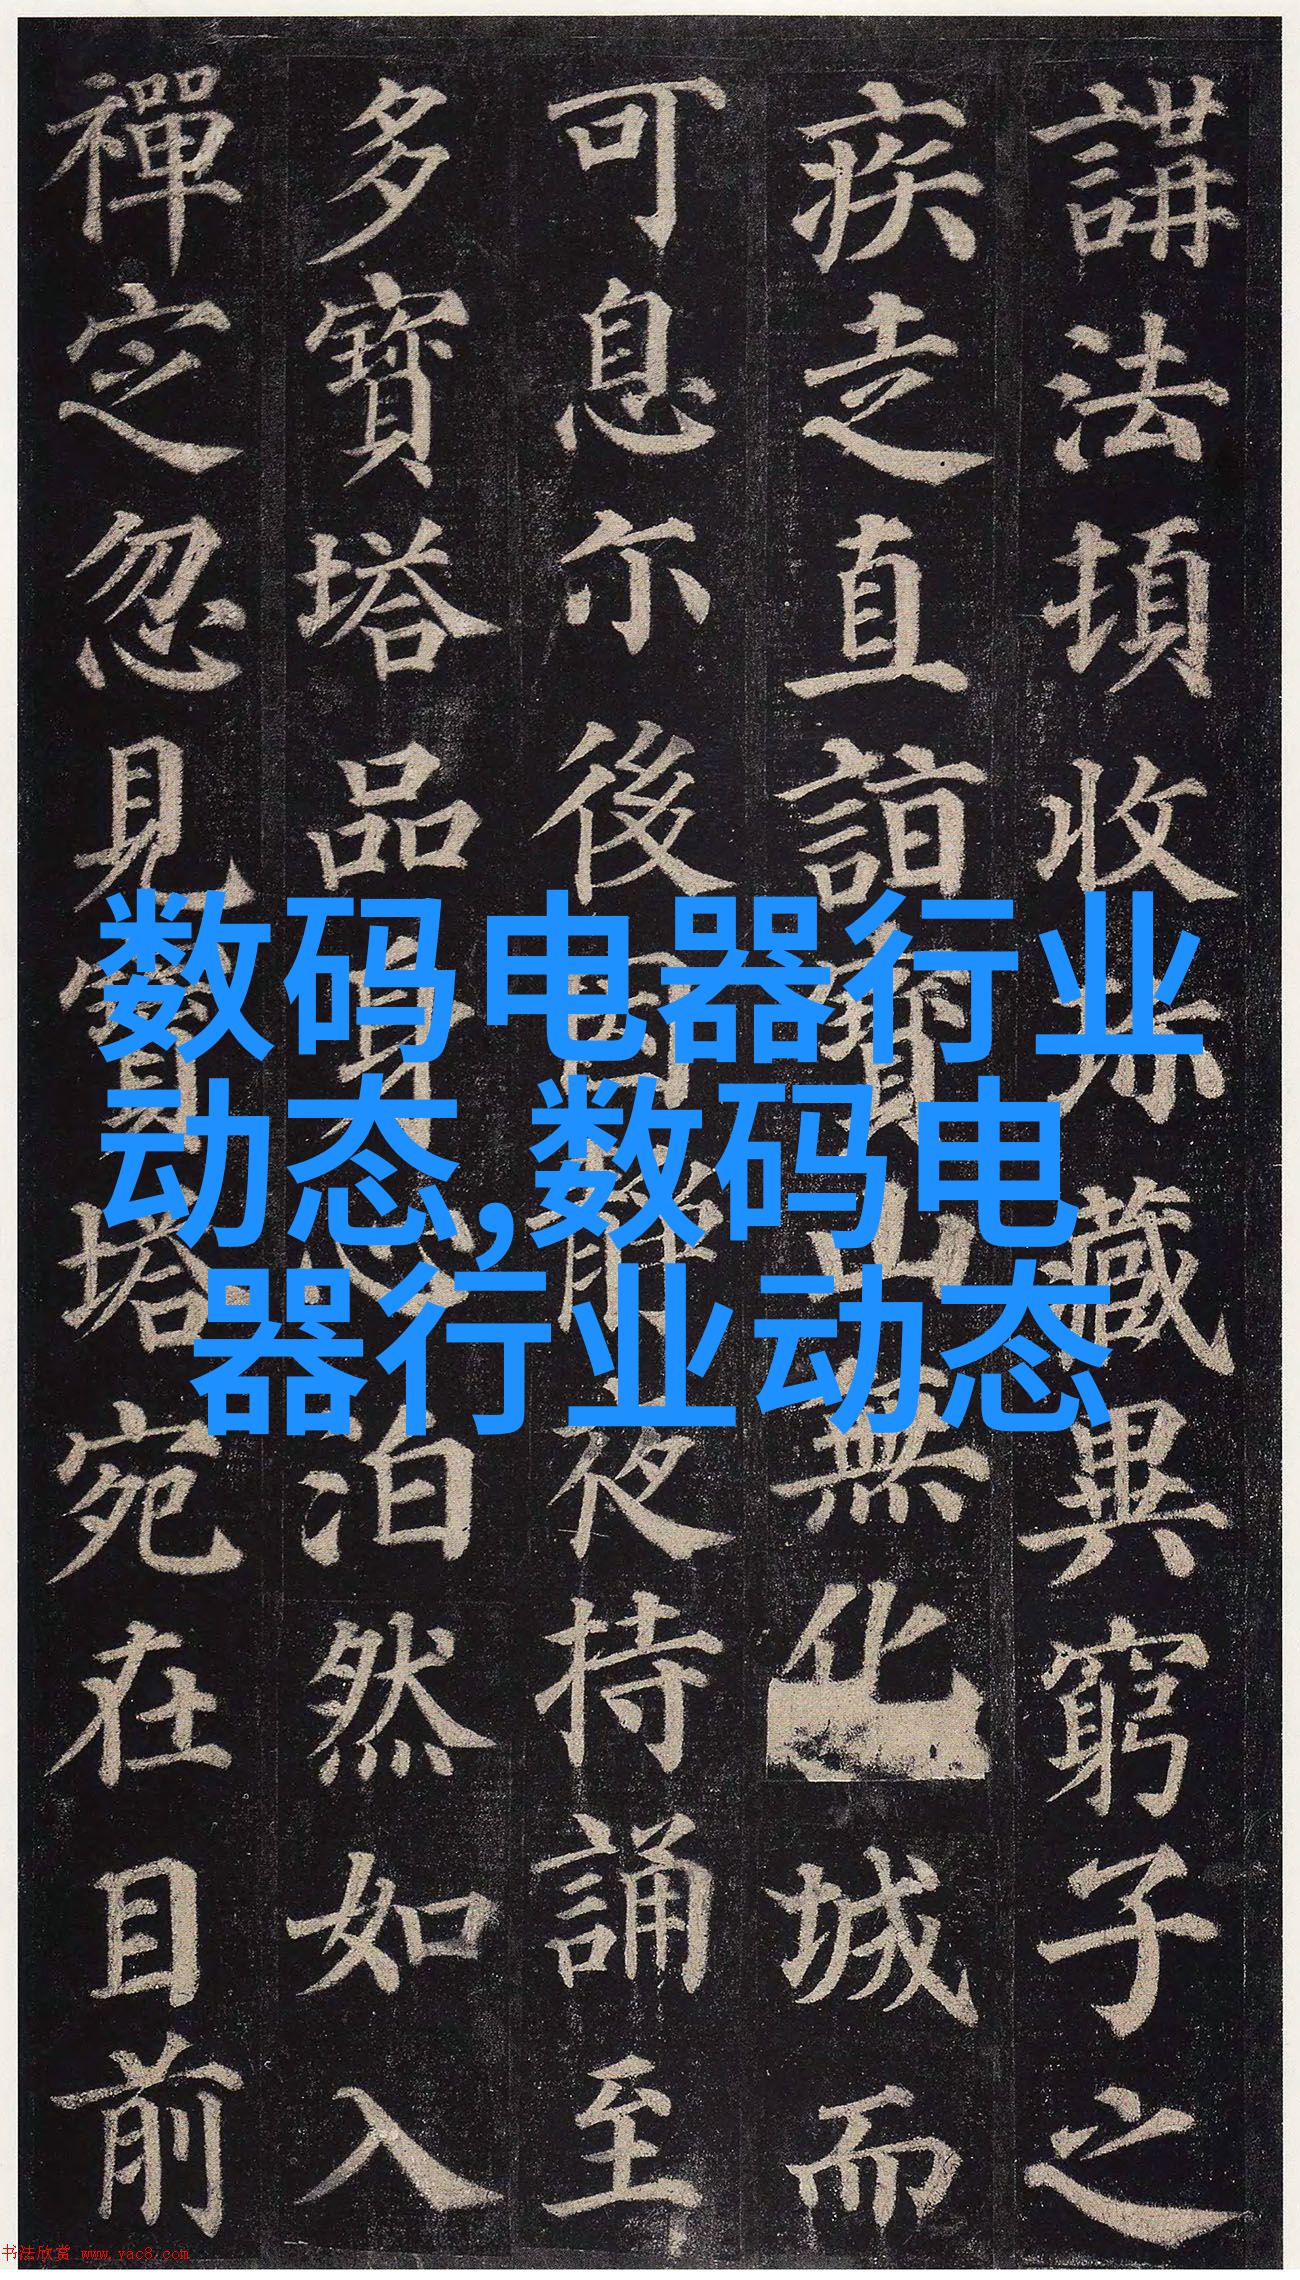 講法頓收珎藏異窮子之
疾走直詣寶山無化城而
可息尒後因静夜持誦至
多寶塔品身心泊然如入
禪定忽見寶塔宛在目前
数码电器行业
动态,数码电
器行业动态
书法欣赏 www.yac8.com